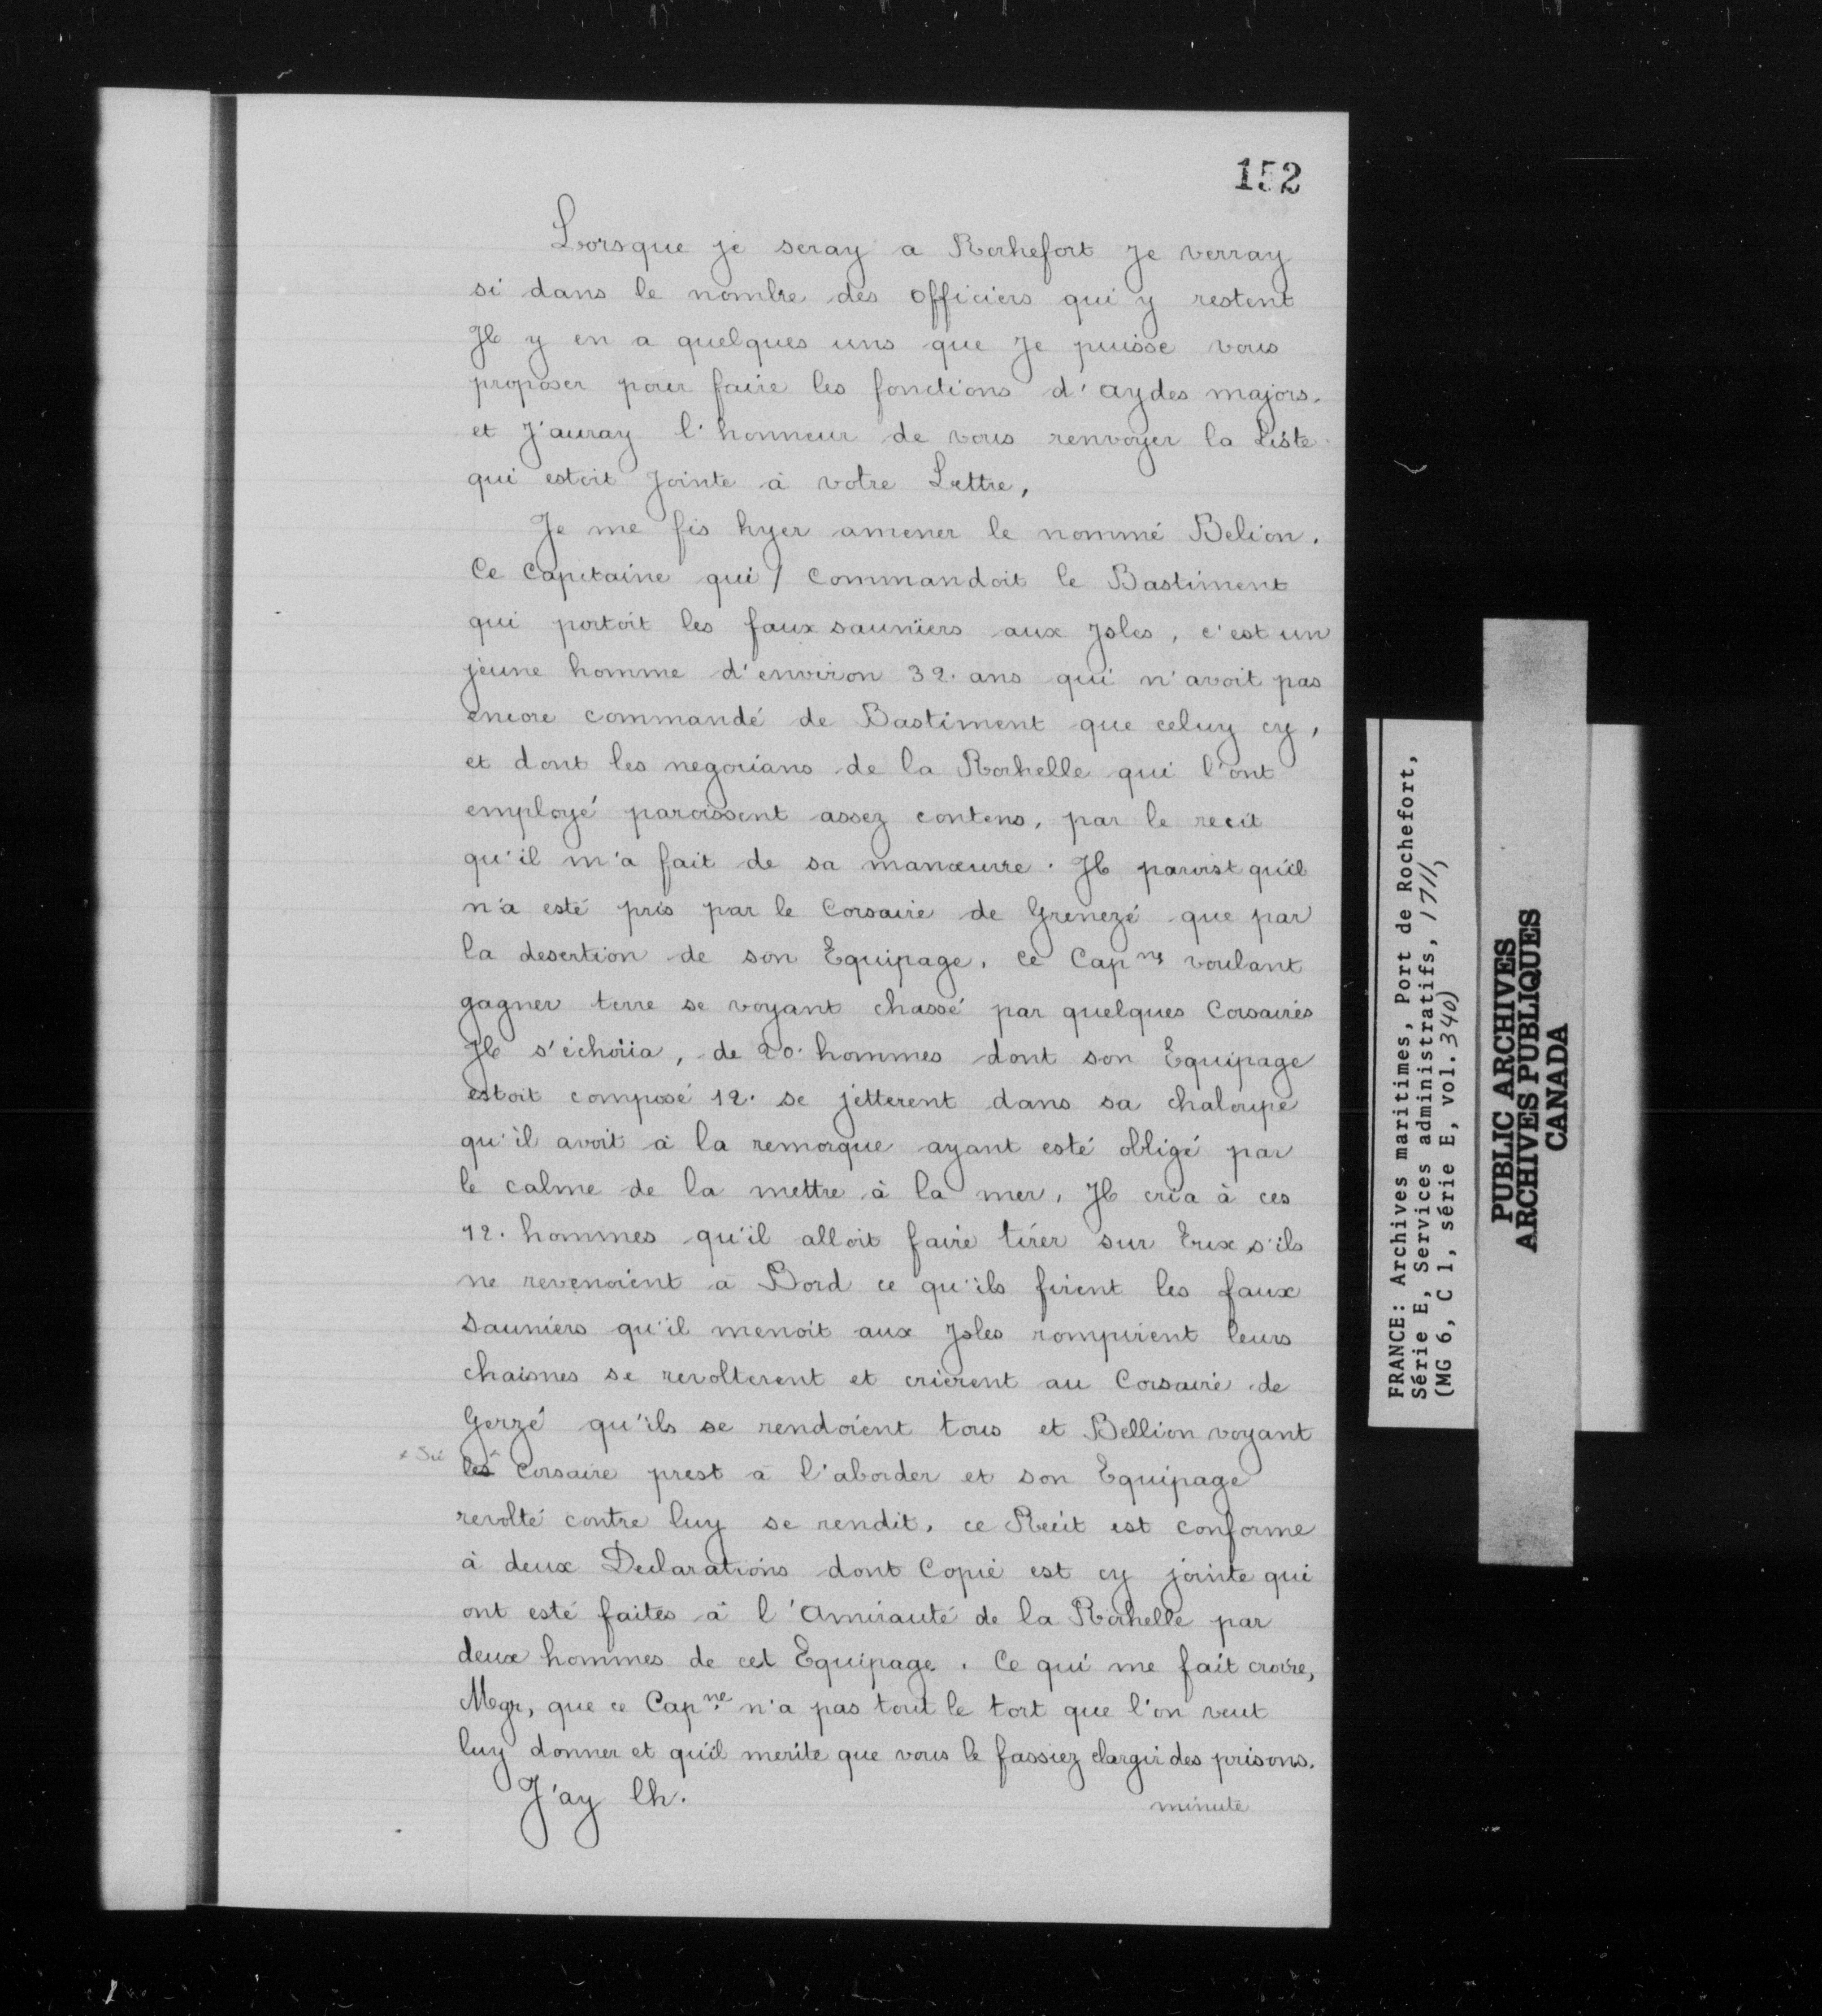 152
Lorsque je seray a Rochefort je verray
si dans le nombre des officiers qui y restent
Il y en a quelques uns que je puisse vous
proposer pour faire les fonctions d'aydes majors.
et J'auray l'honneur de vous renvoyer la Liste
qui estoit Jointe à votre Lettre,
Je me fis hyer amener le nommé Belion.
Ce Capitaine qui / Commandoit le Bastiment
qui portoit les faux sauniers aux Isles, c'est un
jeune homme d'environ 32. ans qui n'avoit pas
encore commandé de Bastiment que celuy cy,
et dont les negocians de la Rochelle qui l'ont
employé paroissent assez contens, par le recit
qu'il m'a fait de sa manœuvre. Il paroist qu'il
n'a esté pris par le Corsaire de Grenezé que par
la desertion de son Equipage. Ce Cap ne voulant
gagner terre se voyant chassé par quelques Corsaires
Il s'échoüa, de 20. hommes dont son Equipage
estoit composé 12. se jetterent dans sa chaloupe
qu'il avoit à la remorque ayant esté obligé par
le calme de la mettre à la mer, Il cria à ces
12. hommes qu'il alloit faire tirer sur Eux s'ils
ne revenoient à Bord ce qu'ils firent les faux
sauniers qu'il menoit aux Isles rompirent leurs
chaisnes se revolterent et crierent au Corsaire de
Gerzé qu'ils se rendoient tous et Bellion voyant
x Sic
les x Corsaire prest à l'aborder et son Equipage
revolté contre luy se rendit. ce Recit est conforme
à deux Declarations dont Copie est cy jointe qui
ont esté faites à l'Amirauté de la Rochelle par
deux hommes de cet Equipage. Ce qui me fait croire,
Mgr, que ce Cap.ne n'a pas tout le tort que l'on veut
luy donner et qu'il merite que vous le fassiez elargir des prisons.
J'ay lh.
minute
FRANCE: Archives maritimes, Port de Rochefort,
Série E, Services administratifs, 1711,
(MG 6, C 1, série E, vol. 340)
PUBLIC ARCHIVES
ARCHIVES PUBLIQUES
CANADA